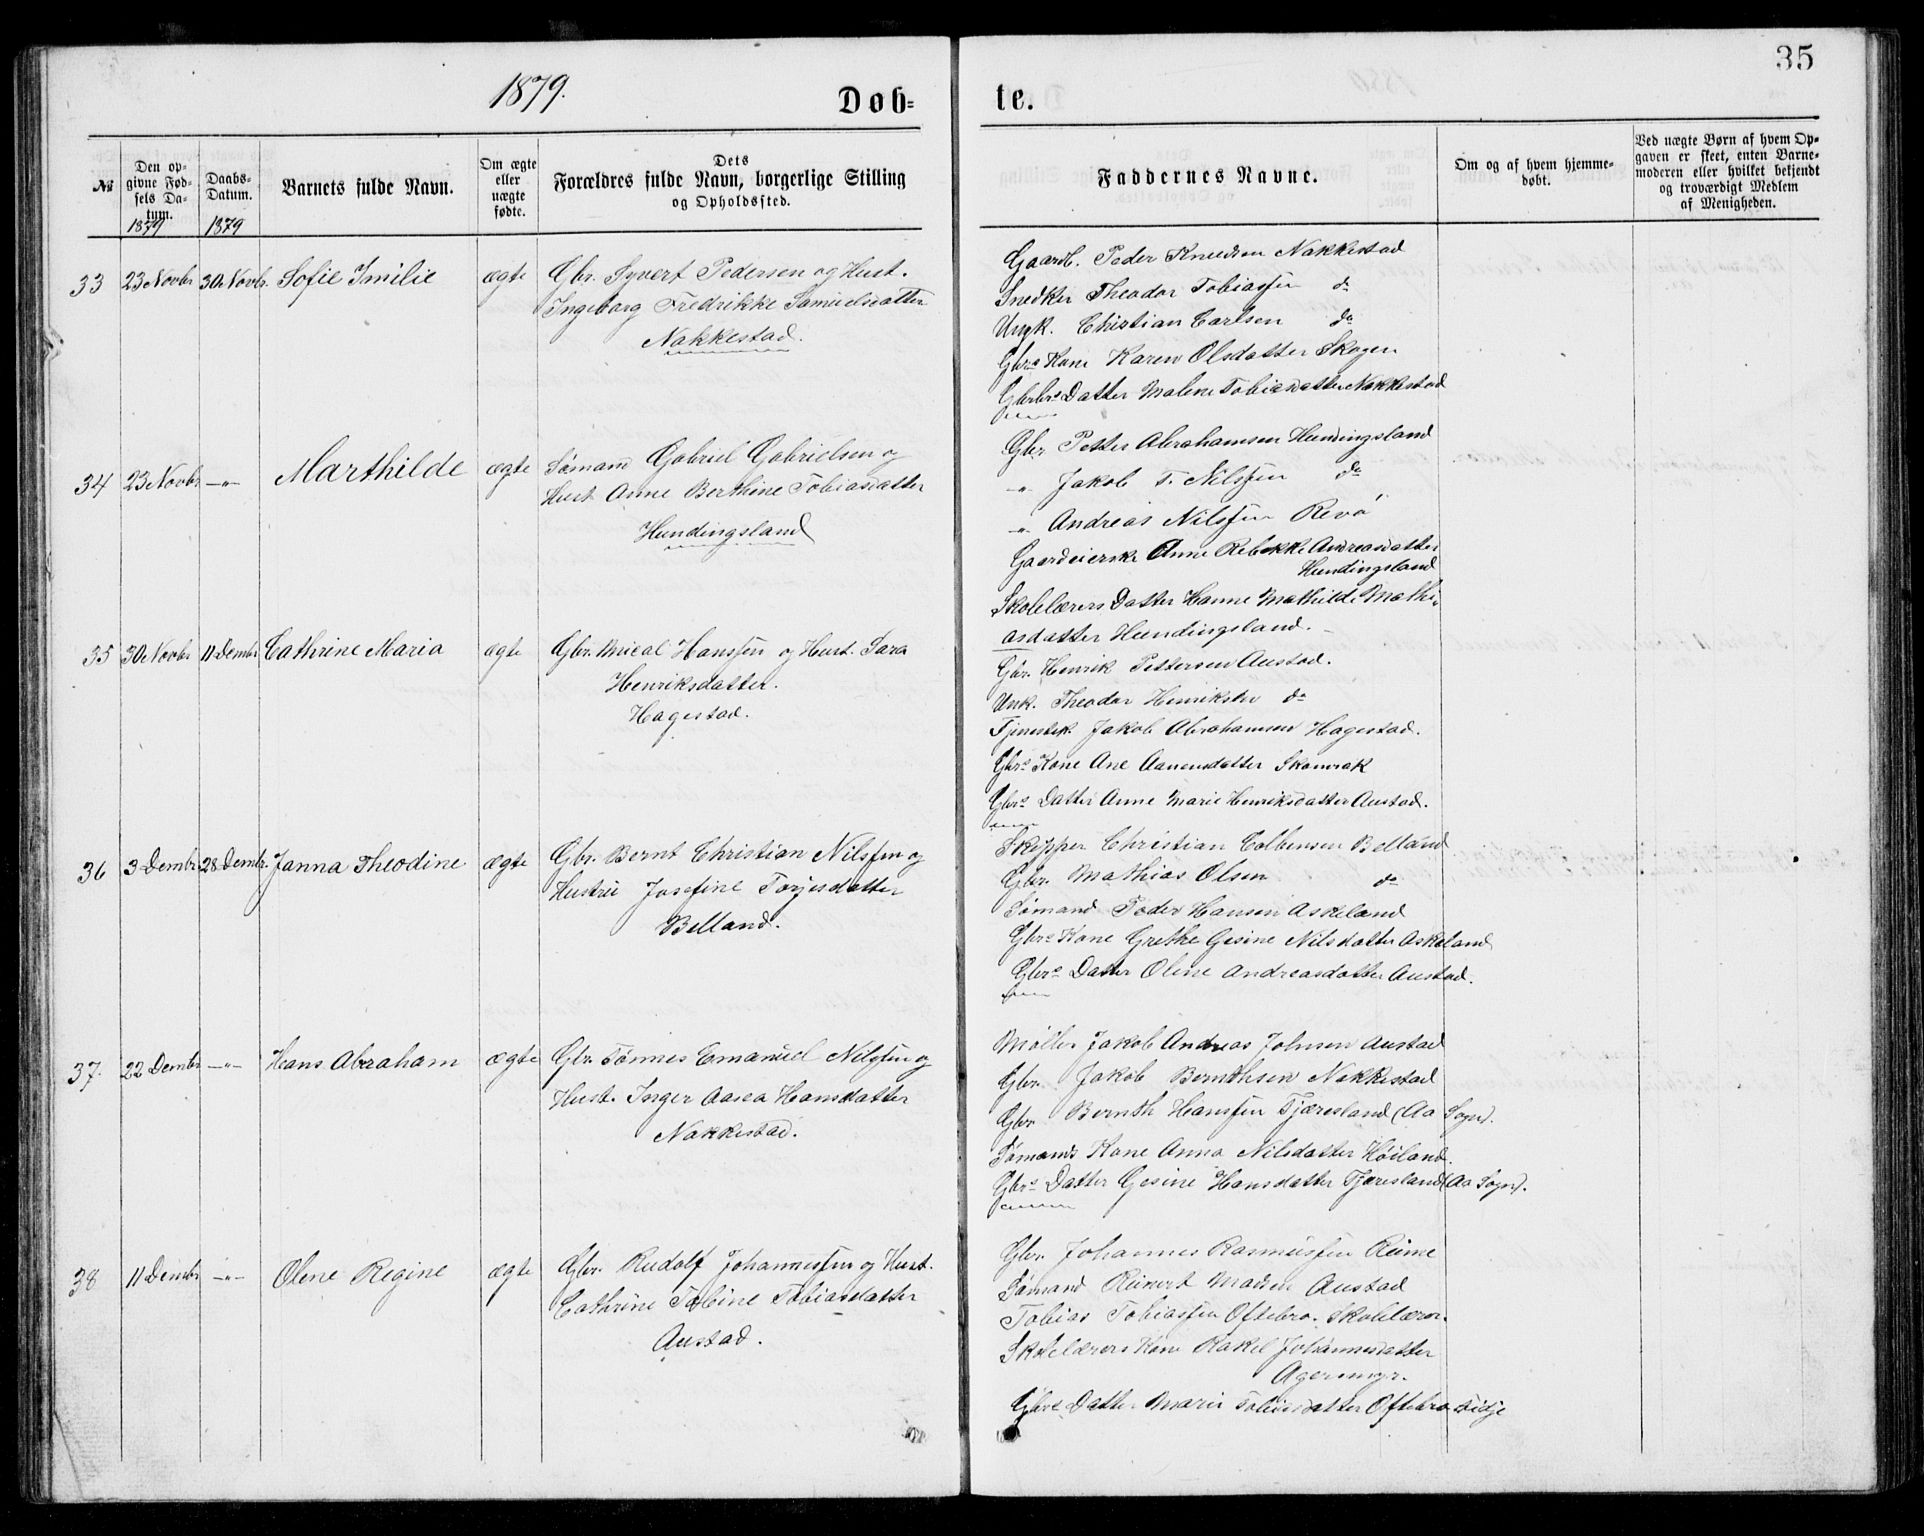 35
1879.
Døb-
te.
№
Den op-
givne Fød-
sels Da-
tum.
1879
Daabs-
Datum.
1879
Barnets fulde Navn.
Om ægte
eller
uægte
fødte.
Dets
Forældres fulde Navn, borgerlige Stilling
og Opholdssted.
Faddernes Navne.
Om og af hvem hjemme-
døbt.
Ved uægte Børn af hvem Op-
gaven er skeet, enten Barne-
moderen eller hvilket bekjendt
og troværdigt Medlem
af Menigheden.
33 23 Novbr 30 Novbr. Sofie Imilie ægte Gbr. Syvert Pedersen og Hust.
Ingeborg Fredrikke Samuelsdatter
Nakkestad.
Gaardb. Peder Knudsen Nakkestad
Snedker Theodor Tobiassen do
Ungk. Christian Carlsen do
Gbrs Kone Karen Olsdatter Skogen
Datter Malene Tobiasdatter Nakkestad
34 23 Novbr -"- Marthilde ægte Sømand Gabriel Gabrielsen og
Hust Anne Berthine Tobiasdatter
Hundingsland
Gbr Petter Abrahamsen Hundingsland
-"- Jakob T. Nilssen do
-"- Andreas Nilssen Revø
Gaardeierske Anne Rebekke Andreasdatter
Hundingsland
Skolelærers Datter Hanne Mathilde Mathi-
asdatter Hundingsland.
35 30 Novbr 11 Dembr Cathrine Maria ægte Gbr. Mical Hanssen og Hust. Sara
Henriksdatter.
Hagestad.
Gbr. Henrik Pettersen Austad.
Unk. Theodor Henriksen do
Tjenestek. Jakob Abrahamsen Hagestad.
Gbrs Kone Ane Aanensdatter
Gbrs Datter Anne Marie Henriksdatter Austad.
36 3 Dembr 28 Dembr. Janna Theodine ægte Gbr. Bernt Christian Nilssen og
Hustru Josefine Torjesdatter
Belland.
Skipper Christian Colbensen Belland
Gbr. Mathias Olsen do
Sømand Peder Hansen Askeland
Gbrs Kone Grethe Gesine Nilsdatter Askeland
Gbrs Datter Oline Andreasdatter Austad.
37. 22 Dembr -"- Hans Abraham ægte Gbr. Tønnes Emanuel Nilssen og
Hust. Inger Aasea Hansdatter
Nakkestad.
Møller Jakob Andreas Johnsen Austad
Gbr. Jakob Bernthsen Nakkestad
Gbr. Bernth Hanssen Tjæresland (Aa Sogn).
Sømands Kone Anna Nilsdatter Høiland.
Gbrs Datter Gesine Hansdatter Tjæresland (Aa Sogn).
38 11 Dembr -"- Olene Regine ægte Gbr. Rudolf Johannessen og Hust.
Cathrine Tobine Tobiasdatter
Austad.
Gbr. Johannes Rasmussen Reime
Sømand Reinert Madsen Austad
Tobias Tobiassen Oftebro. Skolelærer.
Skolelærers Kone Rakel Johannesdatter
Agermyr.
Gbrs Datter Marie Tobiasdatter Oftebro